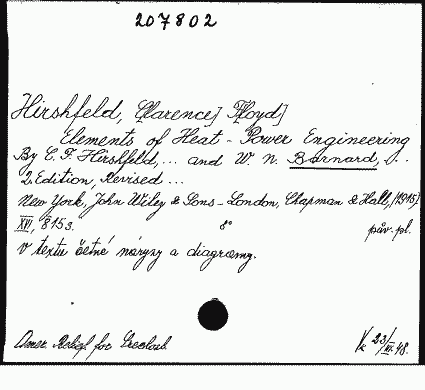 207802
Hirshfeld, C[larence] F[loyd]
Elements of Heat-Power Engineering
By C. F. Hirshfeld, ... and W. N. Barnard, ...
2 Edition, Revised ...
New York, John Wiley & Sons - London, Chapman & Hall, [1915]
XVI, 815 s. 8° pův. pl.
v textu četné nárysy a diagramy.
Amer. Relief for Czechosl. 23/XI.48.